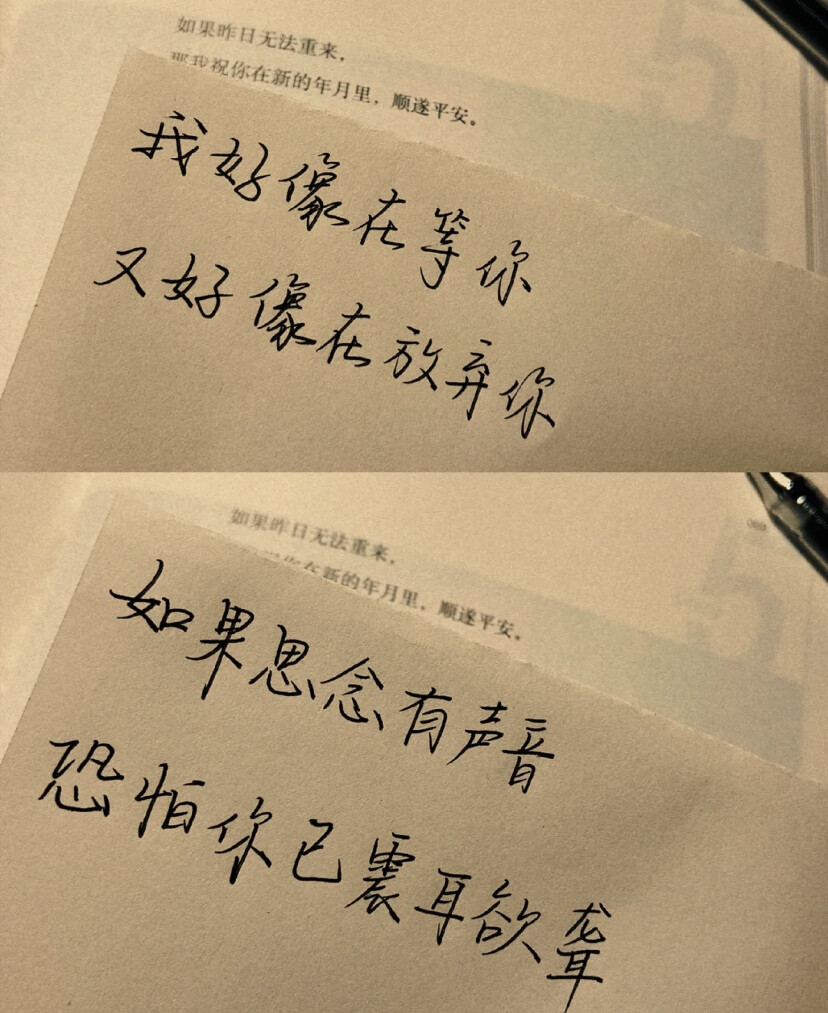 如果昨日无法重来，
那我祝你在新的年月里，顺遂平安。
我好像在等你
又好像在放弃你
如果昨日无法重来，
在新的年月里，顺遂平安。
如果思念有声音
恐怕你已震耳欲聋